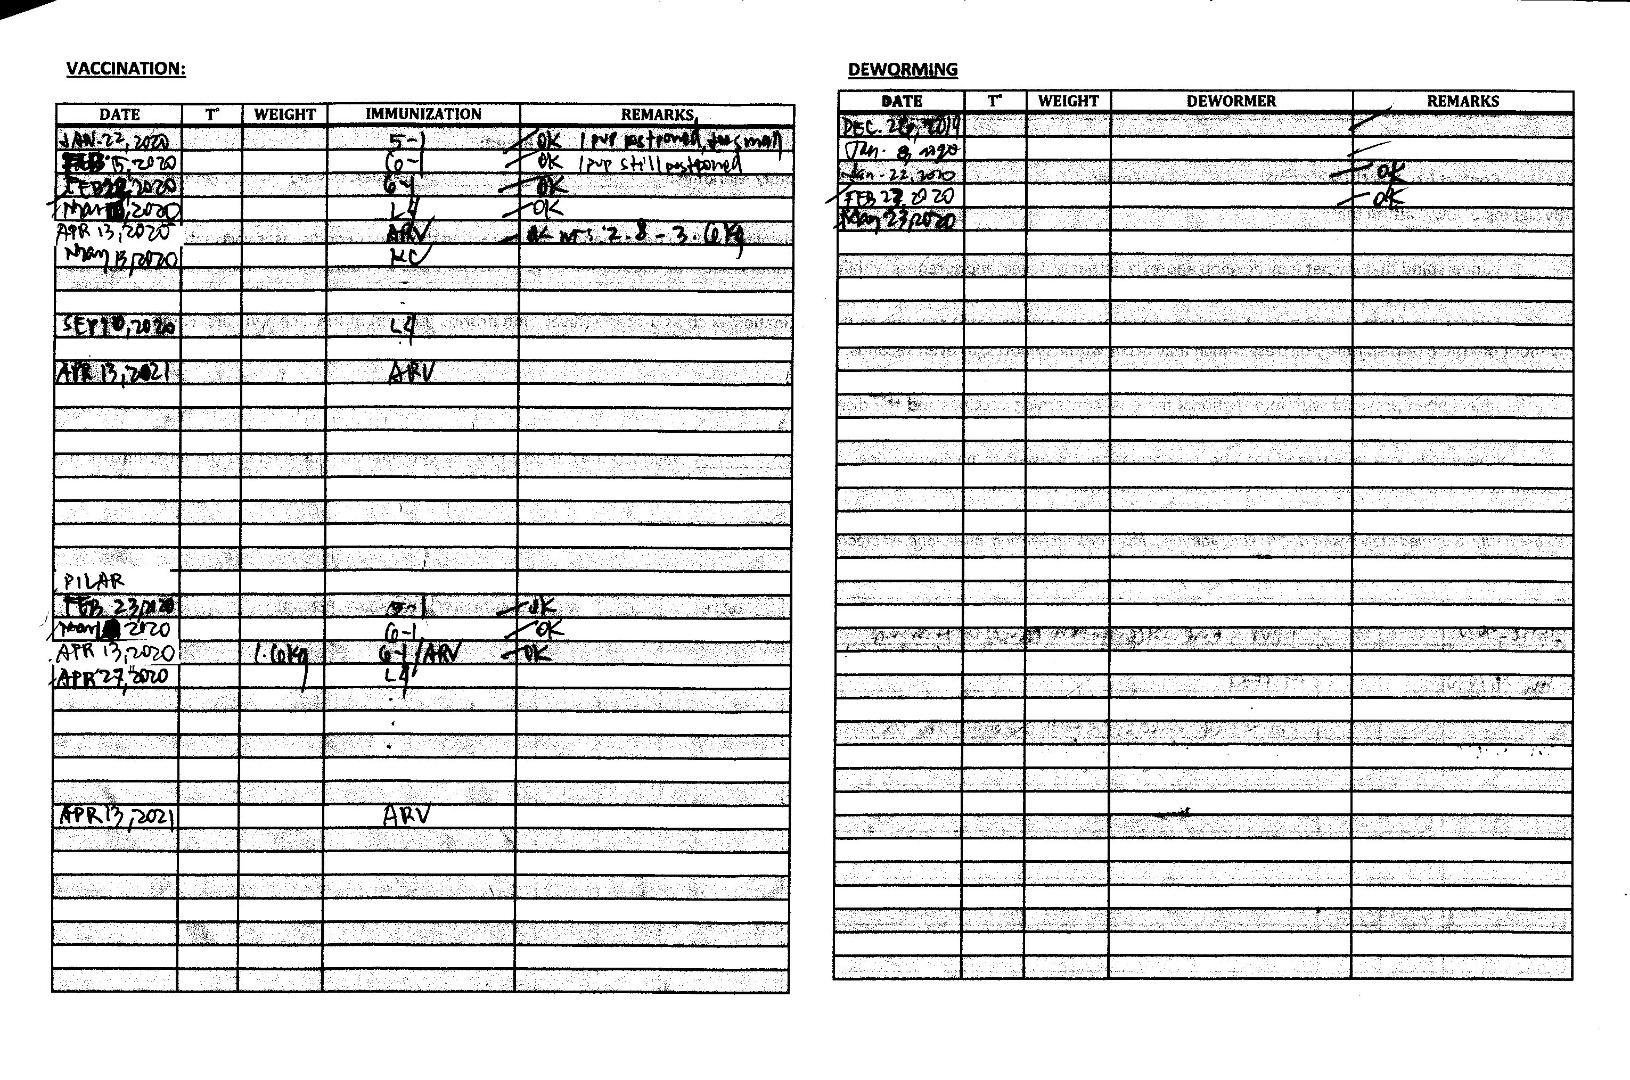 VACCINATION:
DATE T° WEIGHT IMMUNIZATION REMARKS
JAN. 22, 2020 5-1 OK 1 pup postponed, too small
FEB 15, 2020 6-1 OK 1 pup still postponed
FEB 2020 6-1 OK
Mar 2020 L4 OK
APR 13, 2020 ARV OK wts 2.8 - 3.6kg
May 13, 2020 KC
SEPT 2020 L4
APR 13, 2021 ARV
PILAR
FEB 23, 2020 5-1 OK
Mar 2020 6-1 OK
APR 13, 2020 1.6kg 6-1/ARV OK
APR 27, 2020 L4
APR 13, 2021 ARV
DEWORMING
DATE T° WEIGHT DEWORMER REMARKS
DEC. 26, 2019
Jan. 8, 2020
Jan. 22, 2020 OK
FEB 2020 OK
May 23, 2020